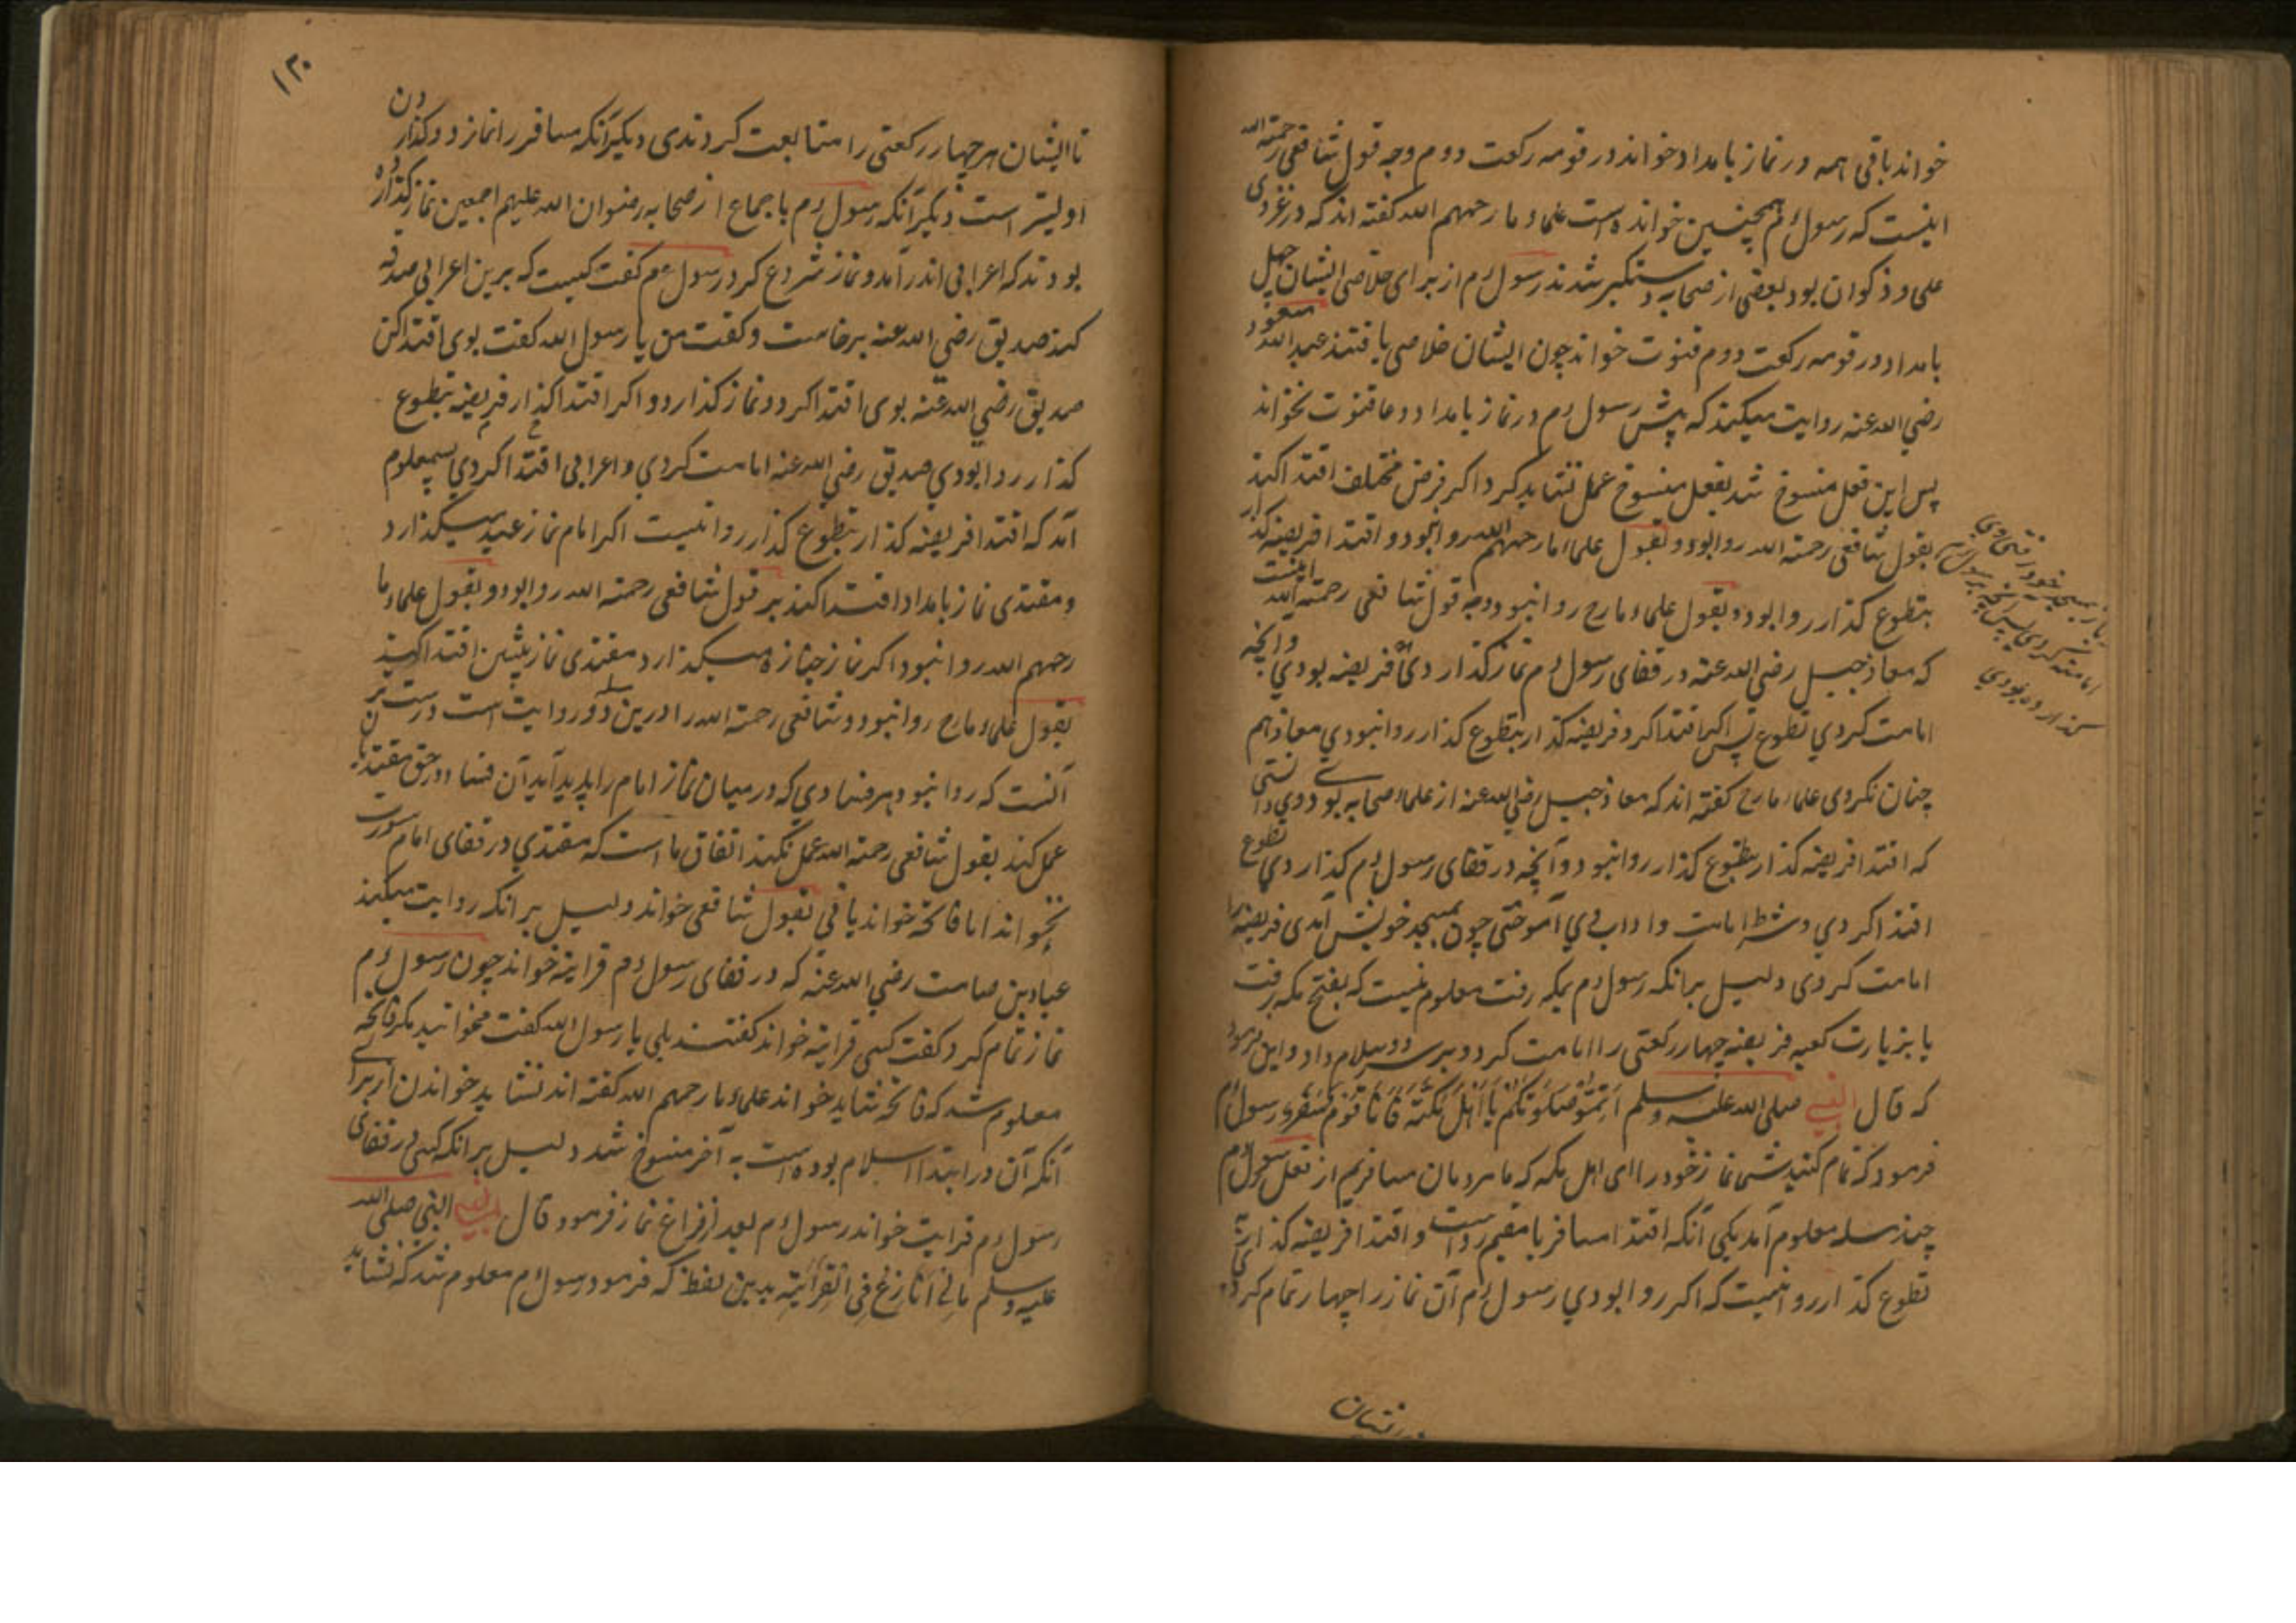 خواند باقی همه در نماز بامداد خواند در قومه رکعت دوم وجه قول شافعی رحمة الله
اینست که رسول ءم همچنین خوانده است علماء ما رحمهم الله گفته اند که در غزوی
علی و ذکوان بود بعضی از صحابه دستگیر شدند رسول ءم از برای خلاصی ایشان چهل
بامداد در قومه رکعت دوم قنوت خواند چون ایشان خلاصی یافتند عبد الله مسعود
رضی الله عنه روایت میکند که پیش رسول ءم در نماز بامداد دعا قنوت نخواند
پس این فعل منسوخ شد بفعل منسوخ عمل نشاید کرد اگر فرض مختلف اقتدا کند
بقول شافعی رحمة الله روا بود و بقول علماء ما رحمهم الله روا نبود و اقتدا فریضه گذار
بتطوع گذار روا بود و بقول علماء ما رح روا نبود وجه قول شافعی رحمة الله اینست
که معاذ جبیل رضی الله عنه در قفای رسول ءم نماز گذاردی فریضه بودی وانچه
امامت کردی تطوع پس اگر اقتدا کرد فریضه گذار بتطوع گذار روا نبودی معاذ هم
چنان نکردی علماء ما رح گفته اند که معاذ جبیل رضی الله عنه از علماء صحابه بود وی دانستی
که اقتدا فریضه گذار بتطوع گذار روا نبود و آنچه در قفای رسول ءم گذاردی تطوع
اقتدا کردی و شرط امامت و اداب وی آموختی چون بمسجد خویش آمدی فریضه را
امامت کردی دلیل برانکه رسول ءم بمکه رفت معلوم نیست که بفتح مکه رفت
یا بزیارت کعبه فریضه چهار رکعتی را امامت کرد و بر سر دو سلام داد و این فرمود
که قال النبی صلی الله علیه وسلم اَتِمّوُ صَلوٰتکُم یَا اَهْلَ مَکّتَه فَاَنَا قَوْم سَفَر رسول ءم
فرمود که تمام کنید شما نماز خود را ای اهل مکه که ما مردمان مسافریم از فعل رسول ءم
چند مسله معلوم آمد یکی آنکه اقتدا مسافر با مقیم رواست و اقتدا فریضه گذار
تطوع گذار روا نیست که اگر روا بودی رسول ءم آن نماز را چهار تمام کردی
امامت کردی
گذاردہ بودی
۱۳۰
تا ایشان هر چهار رکعتی را متابعت کردندی دیگر آنکه مسافر را نماز دو گذاردن
اولیتر است دیگر آنکه رسول ءم باجماع از صحابه رضوان الله علیهم اجمعین نماز گذارده
بودند که اعرابی اندر آمد و نماز شروع کرد رسول ءم گفت کیست که برین اعرابی صدقه
کند صدیق رضی الله عنه برخاست و گفت من یا رسول الله گفت بوی اقتدا کن
صدیق رضی الله عنه بوی اقتدا کرد و نماز گذارد و اگر اقتدا گذار فریضه بتطوع
گذار روا بودی صدیق رضی الله عنه امامت کردی و اعرابی اقتدا کردی پس معلوم
آمد که اقتدا فریضه گذار بتطوع گذار روا نیست اگر امام نماز عید میگذارد
و مقتدی نماز بامداد اقتدا کند بر قول شافعی رحمة الله روا بود و بقول علماء ما
رحمهم الله روا نبود اگر نماز جنازه میگذارد مقتدی نماز پیشین اقتدا کند
بقول علماء ما رح روا نبود و شافعی رحمة الله را درین مسله دو روایت است درست ترین
آنست که روا نبود هر فسادی که در میان نماز امام را پدید آید آن فساد در حق مقتدیان
عمل کند بقول شافعی رحمة الله عمل نکند اتفاق ما است که مقتدی در قفای امام سورت
نخواند اما فاتحه خواند یا نی بقول شافعی خواند دلیل برانکه روایت میکند
عباد بن صامت رضی الله عنه که در قفای رسول ءم قرایته خواند چون رسول ءم
نماز تمام کرد گفت کسی قرایته خواند گفتند بلی یا رسول الله گفت مخوانید مگر فاتحه
معلوم شد که فاتحه شاید خواند علماء ما رحمهم الله گفته اند نشاید خواندن از برای
آنکه آن در ابتدا اسلام بوده است به آخر منسوخ شد دلیل برانکه کسی در قفای
رسول ءم قرایت خواند رسول ءم بعد از فراغ نماز فرمود قال النبی صلی الله
علیه وسلم مالی اُنازِعُ فی القرائتِه بدین لفظ که فرمود رسول ءم معلوم شد که نشاید